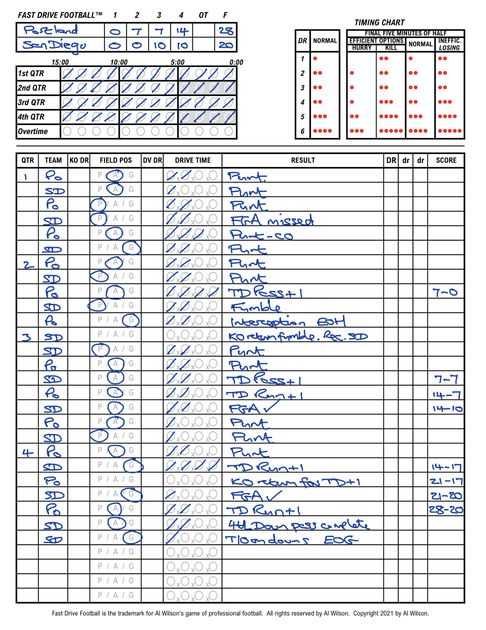 FAST DRIVE FOOTBALL™ 1 2 3 4 OT F
Portland 0 7 7 14 28
San Diego 0 0 10 10 20
15:00 10:00 5:00 0:00
1st QTR
2nd QTR
3rd QTR
4th QTR
Overtime
TIMING CHART
FINAL FIVE MINUTES OF HALF
DR NORMAL EFFICIENT OPTIONS NORMAL INEFFIC.
HURRY KILL LOSING
1
2
3
4
5
6
QTR TEAM KO DR FIELD POS DV DR DRIVE TIME RESULT DR dr dr SCORE
1 Po P / A / G Punt
SD P / A / G Punt
Po P / A / G Punt
SD P / A / G FGA missed
Po P / A / G Punt-CO
SD P / A / G Punt
2 Po P / A / G Punt
SD P / A / G Punt
Po P / A / G TD Pass+1 7-0
SD P / A / G Fumble
Po P / A / G Interception EOH
3 SD P / A / G KO return fumble. Rec. SD
SD P / A / G Punt
Po P / A / G Punt
SD P / A / G TD Pass+1 7-7
Po P / A / G TD Run+1 14-7
SD P / A / G FGA ✓ 14-10
Po P / A / G Punt
SD P / A / G Punt
4 Po P / A / G Punt
SD P / A / G TD Run+1 14-17
Po P / A / G KO return for TD+1 21-17
SD P / A / G FGA ✓ 21-20
Po P / A / G TD Run+1 28-20
SD P / A / G 4th Down pass complete
SD P / A / G T/O on downs EOG
P / A / G
P / A / G
P / A / G
P / A / G
Fast Drive Football is the trademark for Al Wilson's game of professional football. All rights reserved by Al Wilson. Copyright 2021 by Al Wilson.